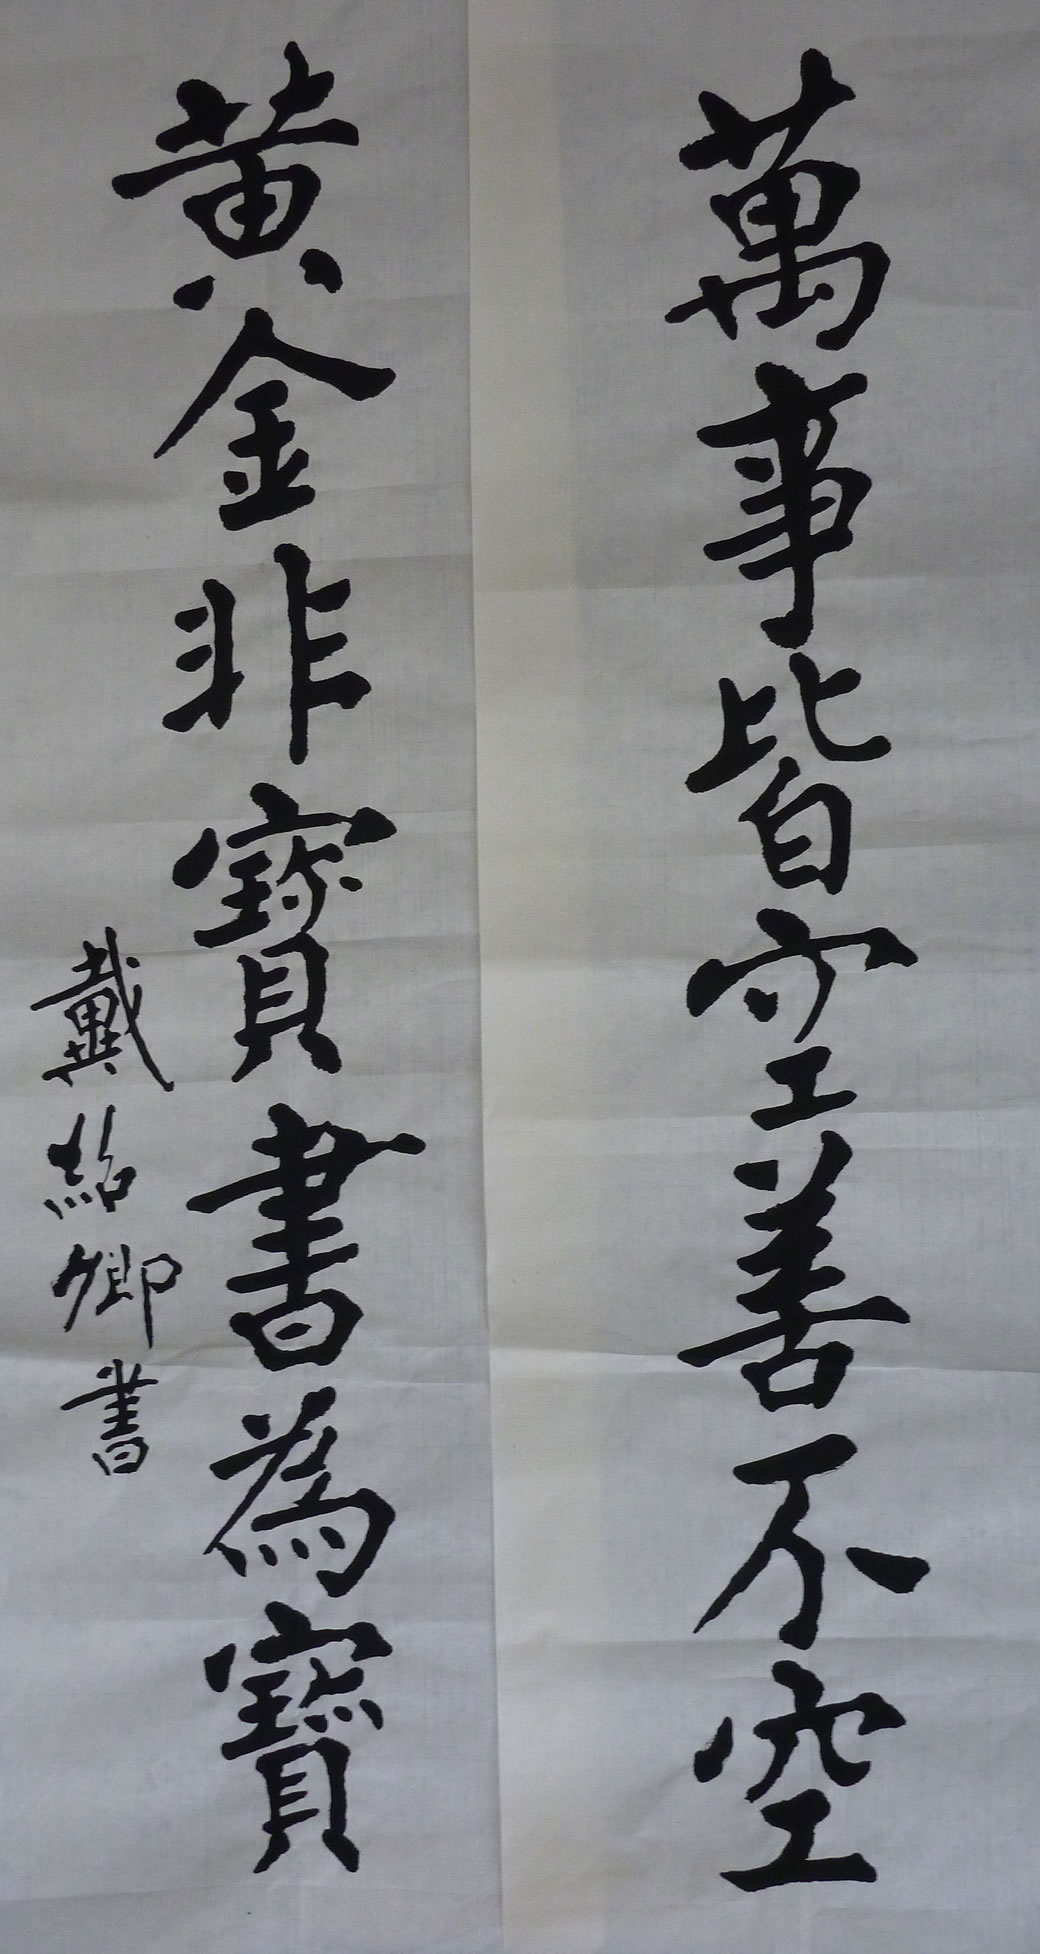 萬事皆空善不空
黃金非寶書為寶
戴紹卿書